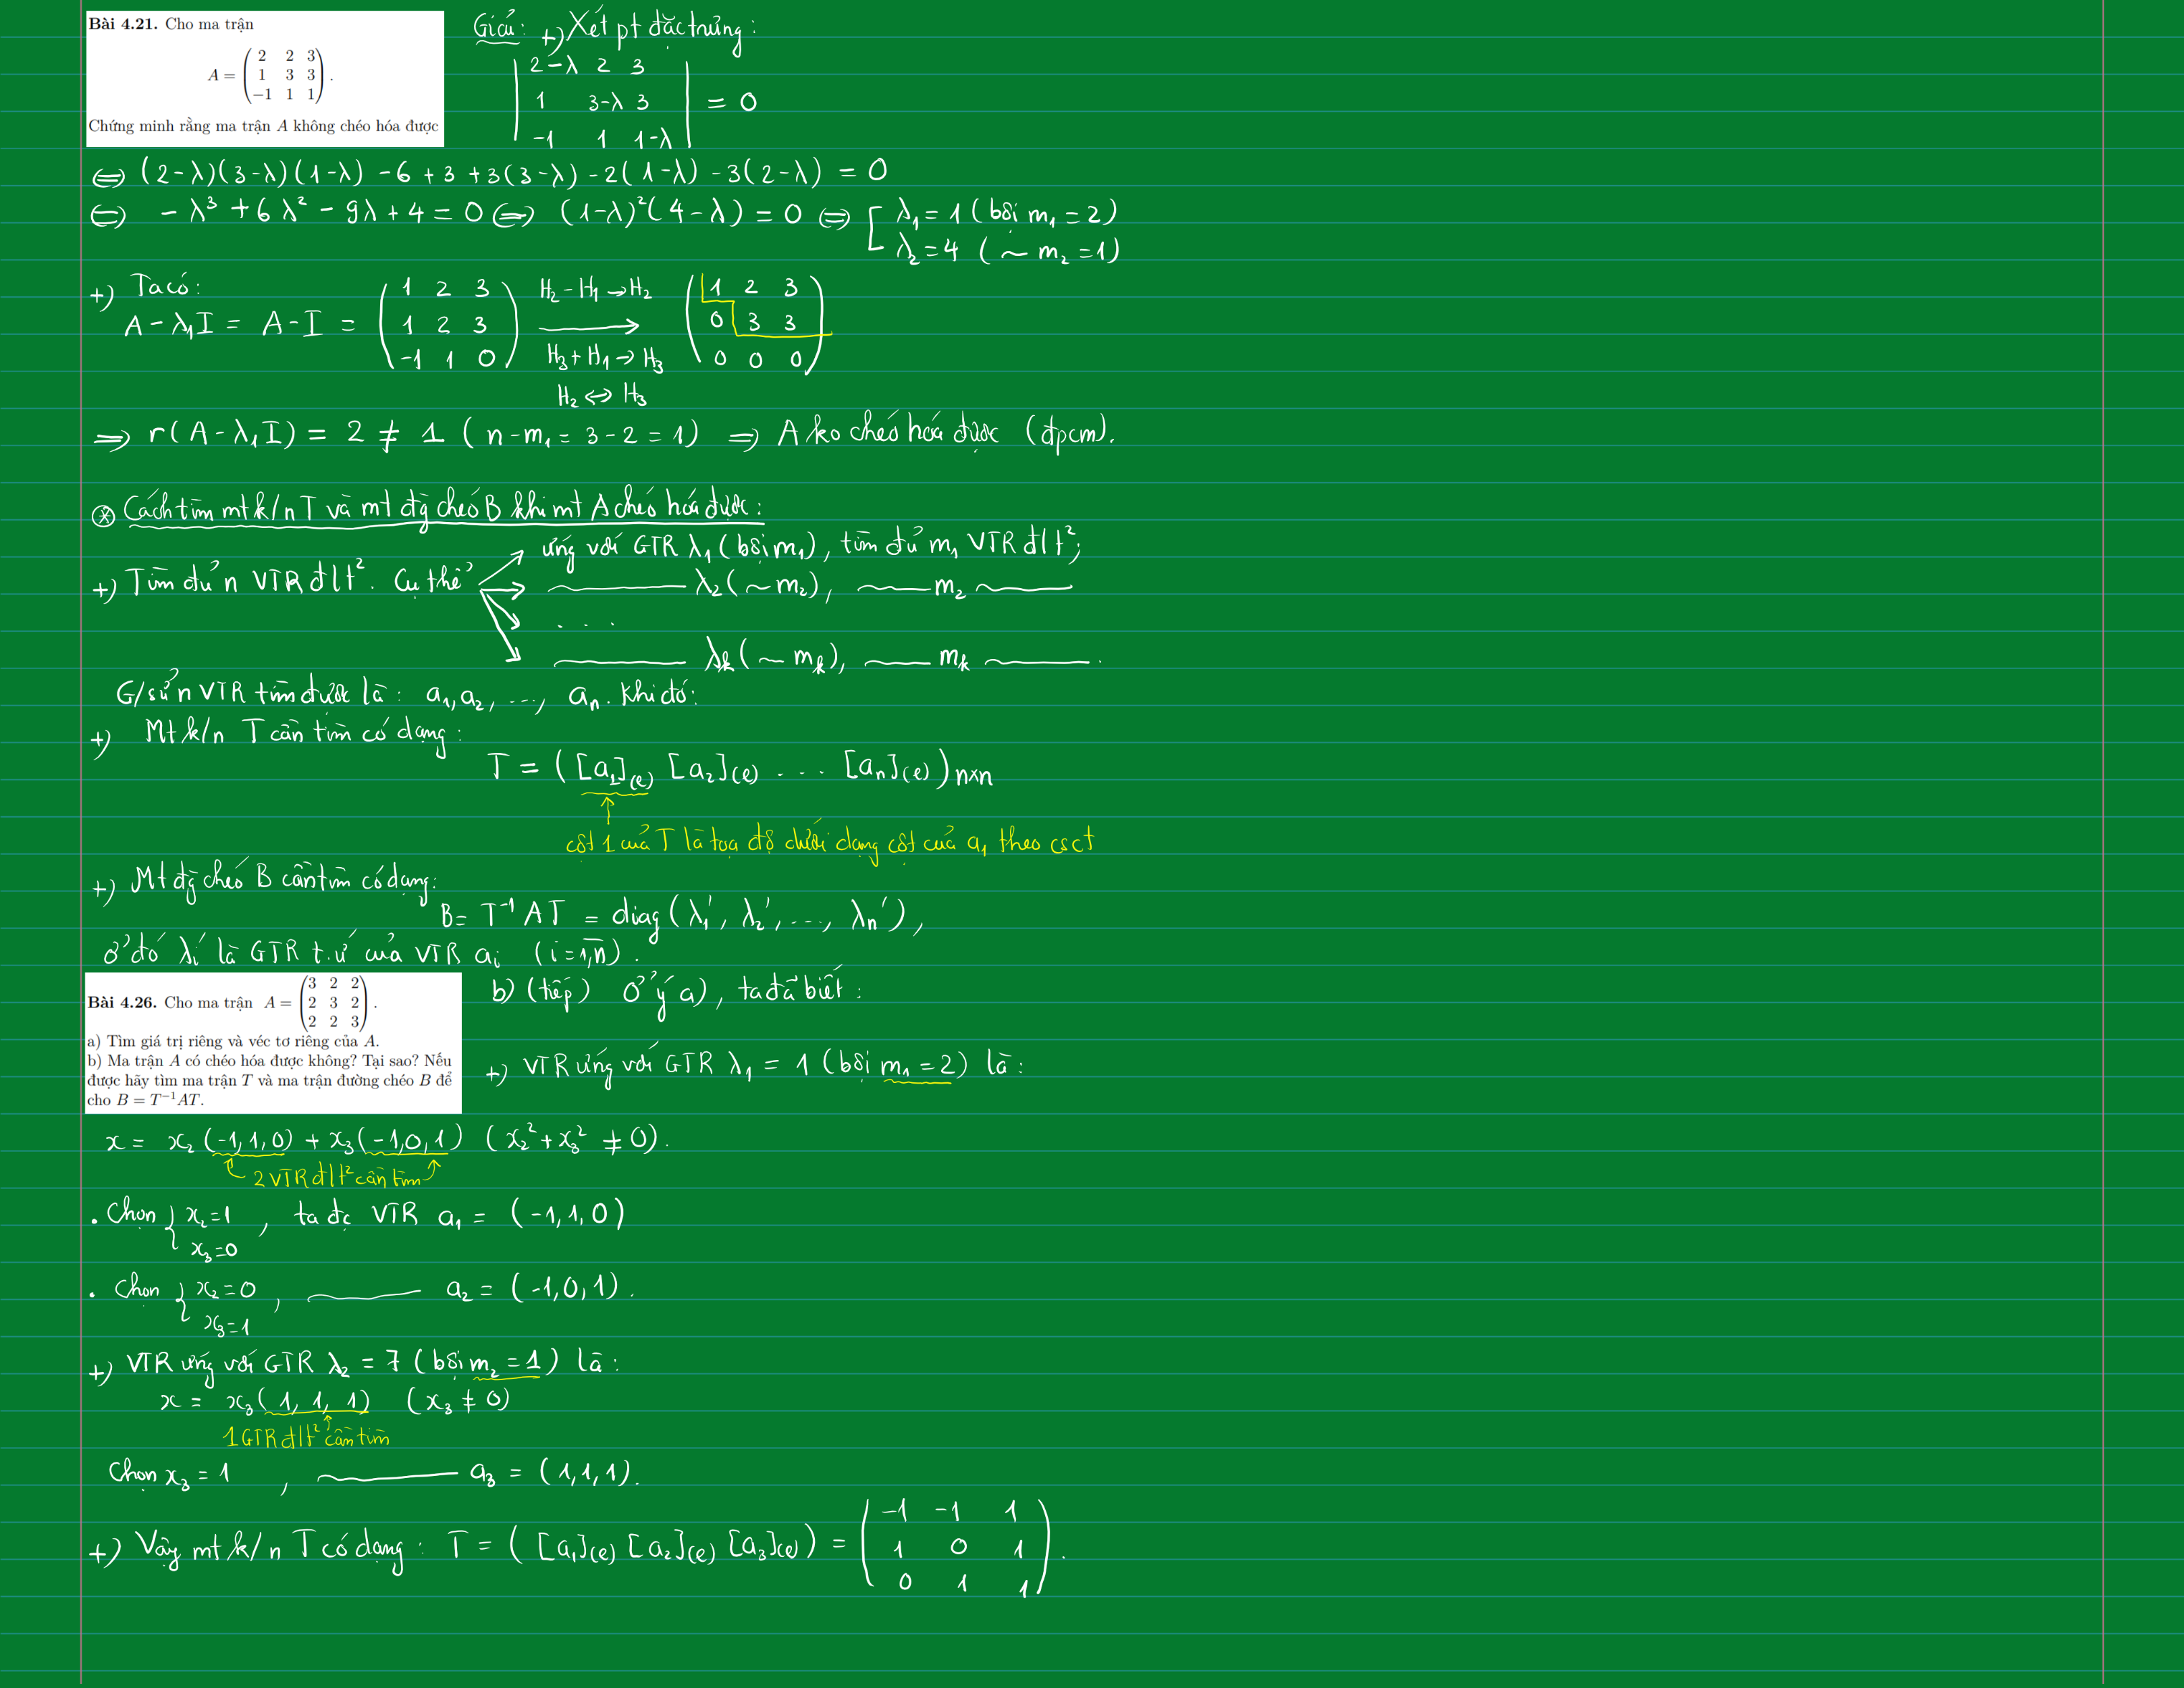 Bài 4.21. Cho ma trận
A = ( 2 2 3
1 3 3
-1 1 1 ).
Chứng minh rằng ma trận A không chéo hóa được
Giải: +) Xét pt đặc trưng:
| 2-λ 2 3 |
| 1 3-λ 3 | = 0
| -1 1 1-λ |
⇔ (2-λ)(3-λ)(1-λ) - 6 + 3 + 3(3-λ) - 2(1-λ) - 3(2-λ) = 0
⇔ -λ³ + 6λ² - 9λ + 4 = 0 ⇔ (1-λ)²(4-λ) = 0 ⇔ [ λ₁ = 1 (bội m₁ = 2)
λ₂ = 4 (~ m₂ = 1)
+) Ta có:
A - λ₁I = A - I = ( 1 2 3
1 2 3
-1 1 0 )
H₂ - H₁ → H₂
H₃ + H₁ → H₃
H₂ ↔ H₃
( 1 2 3
0 3 3
0 0 0 )
⇒ r(A - λ₁I) = 2 ≠ 1 (n - m₁ = 3 - 2 = 1) ⇒ A ko chéo hóa được (đpcm).
⊛ Cách tìm mt k/n T và mt đg chéo B khi mt A chéo hóa được:
ứng với GTR λ₁ (bội m₁), tìm đủ m₁ VTR đlt²;
+) Tìm đủ n VTR đlt². Cụ thể
—— λ₂ (~ m₂), —— m₂ ——
....
—— λₖ (~ mₖ), —— mₖ ——.
G/sử n VTR tìm được là: a₁, a₂, ..., aₙ. Khi đó:
+) Mt k/n T cần tìm có dạng:
T = ([a₁]₍ₑ₎ [a₂]₍ₑ₎ ... [aₙ]₍ₑ₎)ₙₓₙ
cột 1 của T là tọa độ dưới dạng cột của a₁ theo csct
+) Mt đg chéo B cần tìm có dạng:
B = T⁻¹AT = diag(λ₁', λ₂', ..., λₙ'),
ở đó λᵢ' là GTR t.ứ của VTR aᵢ (i = 1,n̅).
Bài 4.26. Cho ma trận A = ( 3 2 2
2 3 2
2 2 3 ).
a) Tìm giá trị riêng và véc tơ riêng của A.
b) Ma trận A có chéo hóa được không? Tại sao? Nếu
được hãy tìm ma trận T và ma trận đường chéo B để
cho B = T⁻¹AT.
b) (tiếp) Ở ý a), ta đã biết:
+) VTR ứng với GTR λ₁ = 1 (bội m₁ = 2) là:
x = x₂(-1,1,0) + x₃(-1,0,1) (x₂² + x₃² ≠ 0).
2 VTR đlt² cần tìm
. Chọn { x₂ = 1
x₃ = 0 , ta đc VTR a₁ = (-1,1,0)
. Chọn { x₂ = 0
x₃ = 1 , —— a₂ = (-1,0,1).
+) VTR ứng với GTR λ₂ = 7 (bội m₂ = 1) là:
x = x₃(1,1,1) (x₃ ≠ 0)
1 GTR đlt² cần tìm
Chọn x₃ = 1 , —— a₃ = (1,1,1).
+) Vậy mt k/n T có dạng: T = ([a₁]₍ₑ₎ [a₂]₍ₑ₎ [a₃]₍ₑ₎) = ( -1 -1 1
1 0 1
0 1 1 ).